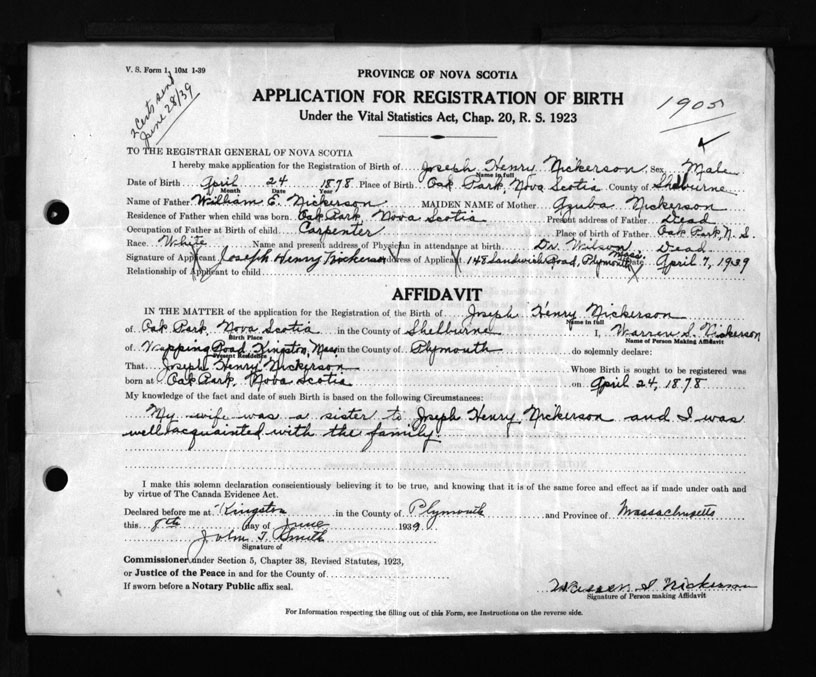 V. S. Form 1, 10M 1-39
2 Certs send
June 28/39
PROVINCE OF NOVA SCOTIA
APPLICATION FOR REGISTRATION OF BIRTH
Under the Vital Statistics Act, Chap. 20, R. S. 1923
1905
TO THE REGISTRAR GENERAL OF NOVA SCOTIA
I hereby make application for the Registration of Birth of Joseph Henry Nickerson, Sex Male
Name in full
Date of Birth April 24 1878 Place of Birth Oak Park, Nova Scotia County of Shelburne
Month Date Year
Name of Father William E. Nickerson MAIDEN NAME of Mother Azuba Nickerson
Residence of Father when child was born Oak Park, Nova Scotia Present address of Father Dead
Occupation of Father at Birth of child Carpenter Place of birth of Father Oak Park, N. S.
Race White Name and present address of Physician in attendance at birth Dr. Wilson Dead
Signature of Applicant X Joseph Henry Nickerson Address of Applicant X 148 Sandwich Road, Plymouth Mass. Date April 7, 1939
Relationship of Applicant to child
AFFIDAVIT
IN THE MATTER of the application for the Registration of the Birth of Joseph Henry Nickerson
Name in full
of Oak Park, Nova Scotia in the County of Shelburne I, Warren S. Nickerson
Birth Place Name of Person Making Affidavit
of Wapping Road, Kingston, Mass in the County of Plymouth do solemnly declare:
Present Residence
That Joseph Henry Nickerson Whose Birth is sought to be registered was
born at Oak Park, Nova Scotia on April 24, 1878
My knowledge of the fact and date of such Birth is based on the following Circumstances:
My wife was a sister to Joseph Henry Nickerson and I was
well acquainted with the family.
I make this solemn declaration conscientiously believing it to be true, and knowing that it is of the same force and effect as if made under oath and
by virtue of The Canada Evidence Act.
Declared before me at Kingston in the County of Plymouth and Province of Massachusetts
this 8th day of June 1939
John T. Smith
Signature of
Commissioner under Section 5, Chapter 38, Revised Statutes, 1923,
or Justice of the Peace in and for the County of
If sworn before a Notary Public affix seal.
Warren S Nickerson
Signature of Person making Affidavit
For Information respecting the filling out of this Form, see Instructions on the reverse side.